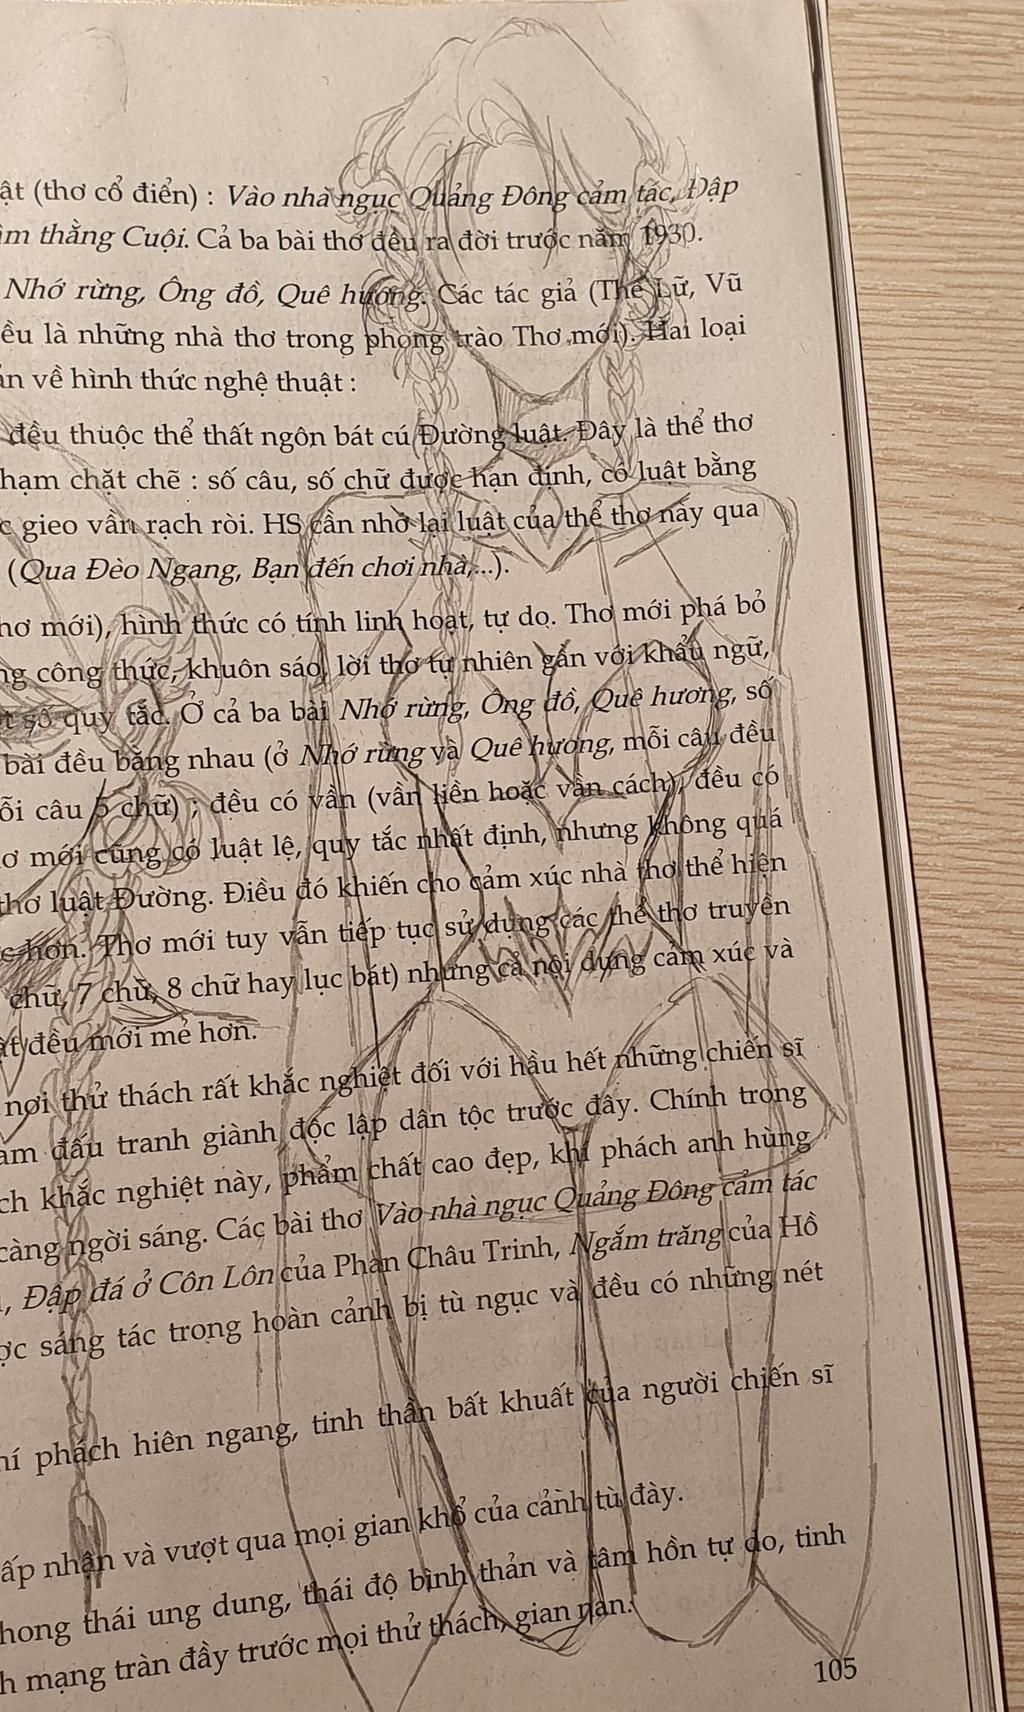 ật (thơ cổ điển) : Vào nhà ngục Quảng Đông cảm tác, Đập
thằng Cuội. Cả ba bài thơ đều ra đời trước năm 1930.
Nhớ rừng, Ông đồ, Quê hương. Các tác giả (Thế Lữ, Vũ
ều là những nhà thơ trong phong trào Thơ mới). Hai loại
ản về hình thức nghệ thuật :
đều thuộc thể thất ngôn bát cú Đường luật. Đây là thể thơ
hạm chặt chẽ : số câu, số chữ được hạn định, có luật bằng
c gieo vần rạch ròi. HS cần nhớ lại luật của thể thơ này qua
(Qua Đèo Ngang, Bạn đến chơi nhà,...).
hơ mới), hình thức có tính linh hoạt, tự do. Thơ mới phá bỏ
ng công thức, khuôn sáo, lời thơ tự nhiên gần với khẩu ngữ,
t số quy tắc. Ở cả ba bài Nhớ rừng, Ông đồ, Quê hương, số
bài đều bằng nhau (ở Nhớ rừng và Quê hương, mỗi câu đều
ỗi câu 5 chữ) ; đều có vần (vần liền hoặc vần cách), đều có
ơ mới cũng có luật lệ, quy tắc nhất định, nhưng không quá
thơ luật Đường. Điều đó khiến cho cảm xúc nhà thơ thể hiện
c hơn. Thơ mới tuy vẫn tiếp tục sử dụng các thể thơ truyền
chữ, 7 chữ, 8 chữ hay lục bát) nhưng cả nội dung cảm xúc và
ật đều mới mẻ hơn.
nơi thử thách rất khắc nghiệt đối với hầu hết những chiến sĩ
am đấu tranh giành độc lập dân tộc trước đây. Chính trong
ch khắc nghiệt này, phẩm chất cao đẹp, khí phách anh hùng
càng ngời sáng. Các bài thơ Vào nhà ngục Quảng Đông cảm tác
, Đập đá ở Côn Lôn của Phan Châu Trinh, Ngắm trăng của Hồ
ợc sáng tác trong hoàn cảnh bị tù ngục và đều có những nét
hí phách hiên ngang, tinh thần bất khuất của người chiến sĩ
ấp nhận và vượt qua mọi gian khổ của cảnh tù đày.
hong thái ung dung, thái độ bình thản và tâm hồn tự do, tinh
h mạng tràn đầy trước mọi thử thách, gian nan.
105